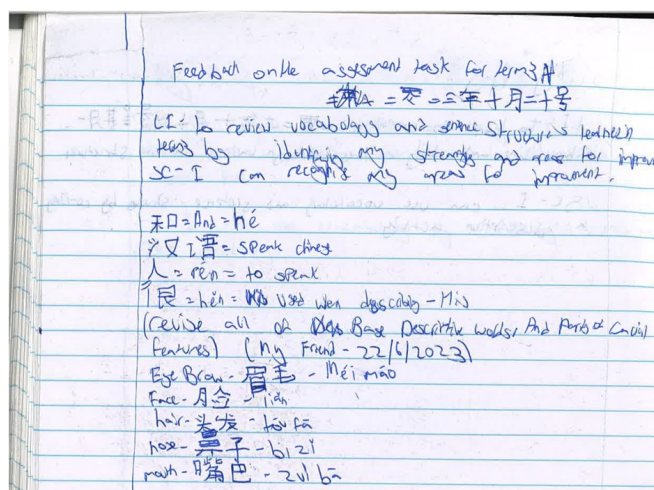 Feedback on the assessment task for term 3
= 零 = 三年十月二十号
LI - to review vocabulary and sentence structures learned in
term 3 by identifying my strengths and areas for improv
SC - I can recognise my areas for improvement.
和 = And = hé
汉语 = speak chines
人 = rén = to speak
很 = hěn = used wen discribing - His
(revise all of Base Descriptive words, And Parts of facial
features) (My Friend - 22/6/2023)
Eye Brow - 眉毛 - Méi máo
Face - 脸 - liǎn
hair - 头发 - tóu fā
nose - 鼻子 - bí zi
mouth - 嘴巴 - zuǐ bā